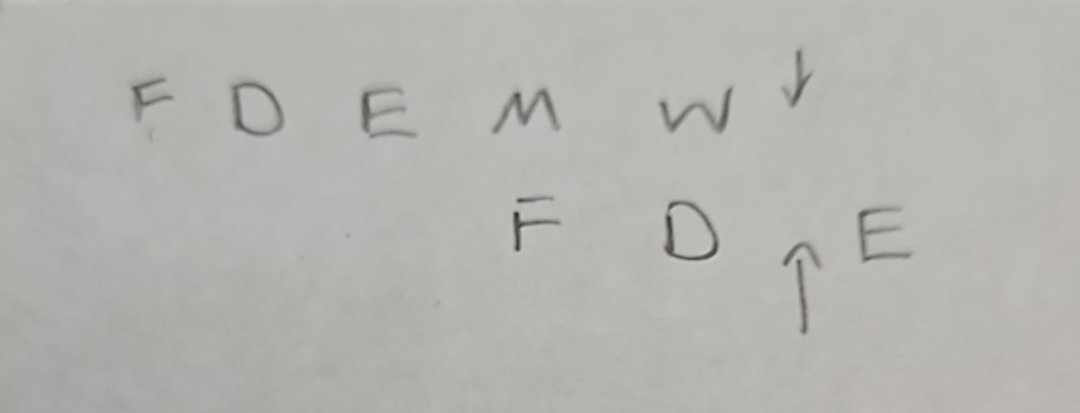 F D E M W ↓
F D ↑ E